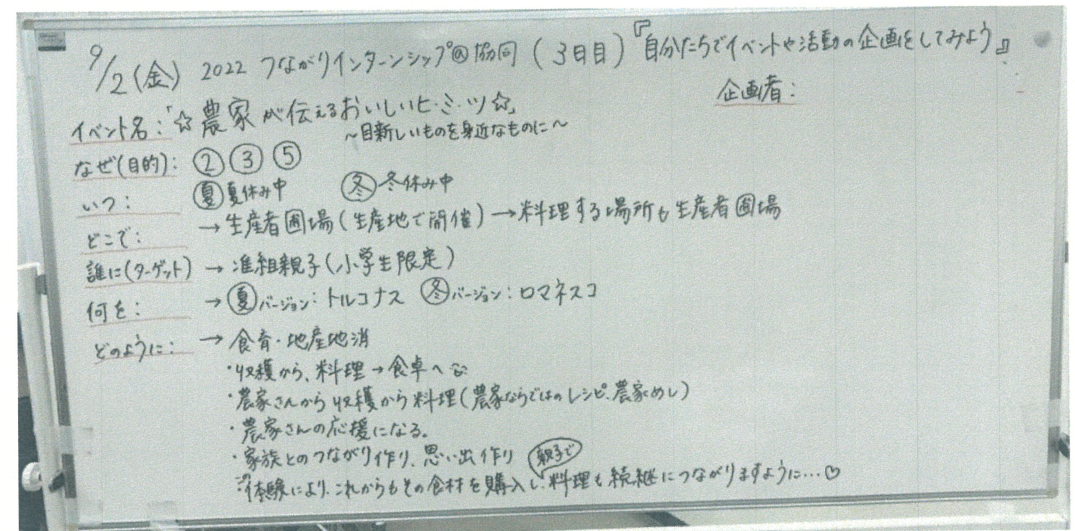 9/2(金) 2022 つながりインターンシップ@協同 (3日目)『自分たちでイベントや活動の企画をしてみよう』
企画者:
イベント名:「☆農家が伝えるおいしいヒ・ミ・ツ☆」
~目新しいものを身近なものに~
なぜ(目的): ② ③ ⑤
いつ: 夏 夏休み中 冬 冬休み中
どこで: →生産者圃場(生産地で開催)→料理する場所も生産者圃場
誰に(ターゲット) →准組親子(小学生限定)
何を: →夏バージョン:トルコナス 冬バージョン:ロマネスコ
どのように: →食育・地産地消
・収穫から、料理→食卓へ
・農家さんから収穫から料理(農家ならではのレシピ、農家めし)
・農家さんの応援になる。
・家族とのつながり作り、思い出作り
親子で
※体験により、これからもその食材を購入し、料理も継続につながりますように…♡